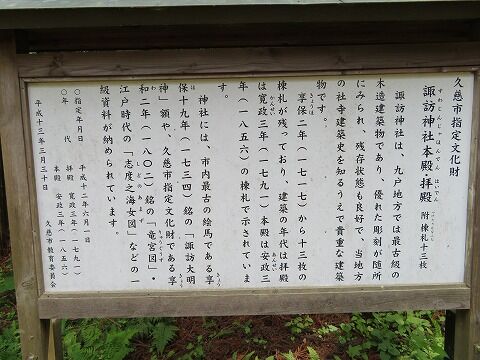 久慈市指定文化財
諏訪神社本殿・拝殿 附棟札十三枚
すわじんじゃほんでん はいでん
諏訪神社は、九戸地方では最古級の
木造建築物であり、優れた彫刻が随所
にみられ、残存状態も良好で、当地方
の社寺建築史を知るうえで貴重な建築
物です。
享保二年(一七一七)から十三枚の
きょうほ
棟札が残っており、建築の年代は拝殿
は寛政三年(一七九一)本殿は安政三
かんせい あんせい
年(一八五六)の棟札で示されていま
す。
神社には、市内最古の絵馬である享
保十九年(一七三四)銘の「諏訪大明
神」額や、久慈市指定文化財である享
和二年(一八〇二)銘の「竜宮図」・
江戸時代の「志度之海女図」などの一
級資料が納められています。
〇指定年月日 平成十二年六月一日
〇年 代 拝殿 寛政三年(一七九一)
本殿 安政三年(一八五六)
平成十三年三月三十日 久慈市教育委員会